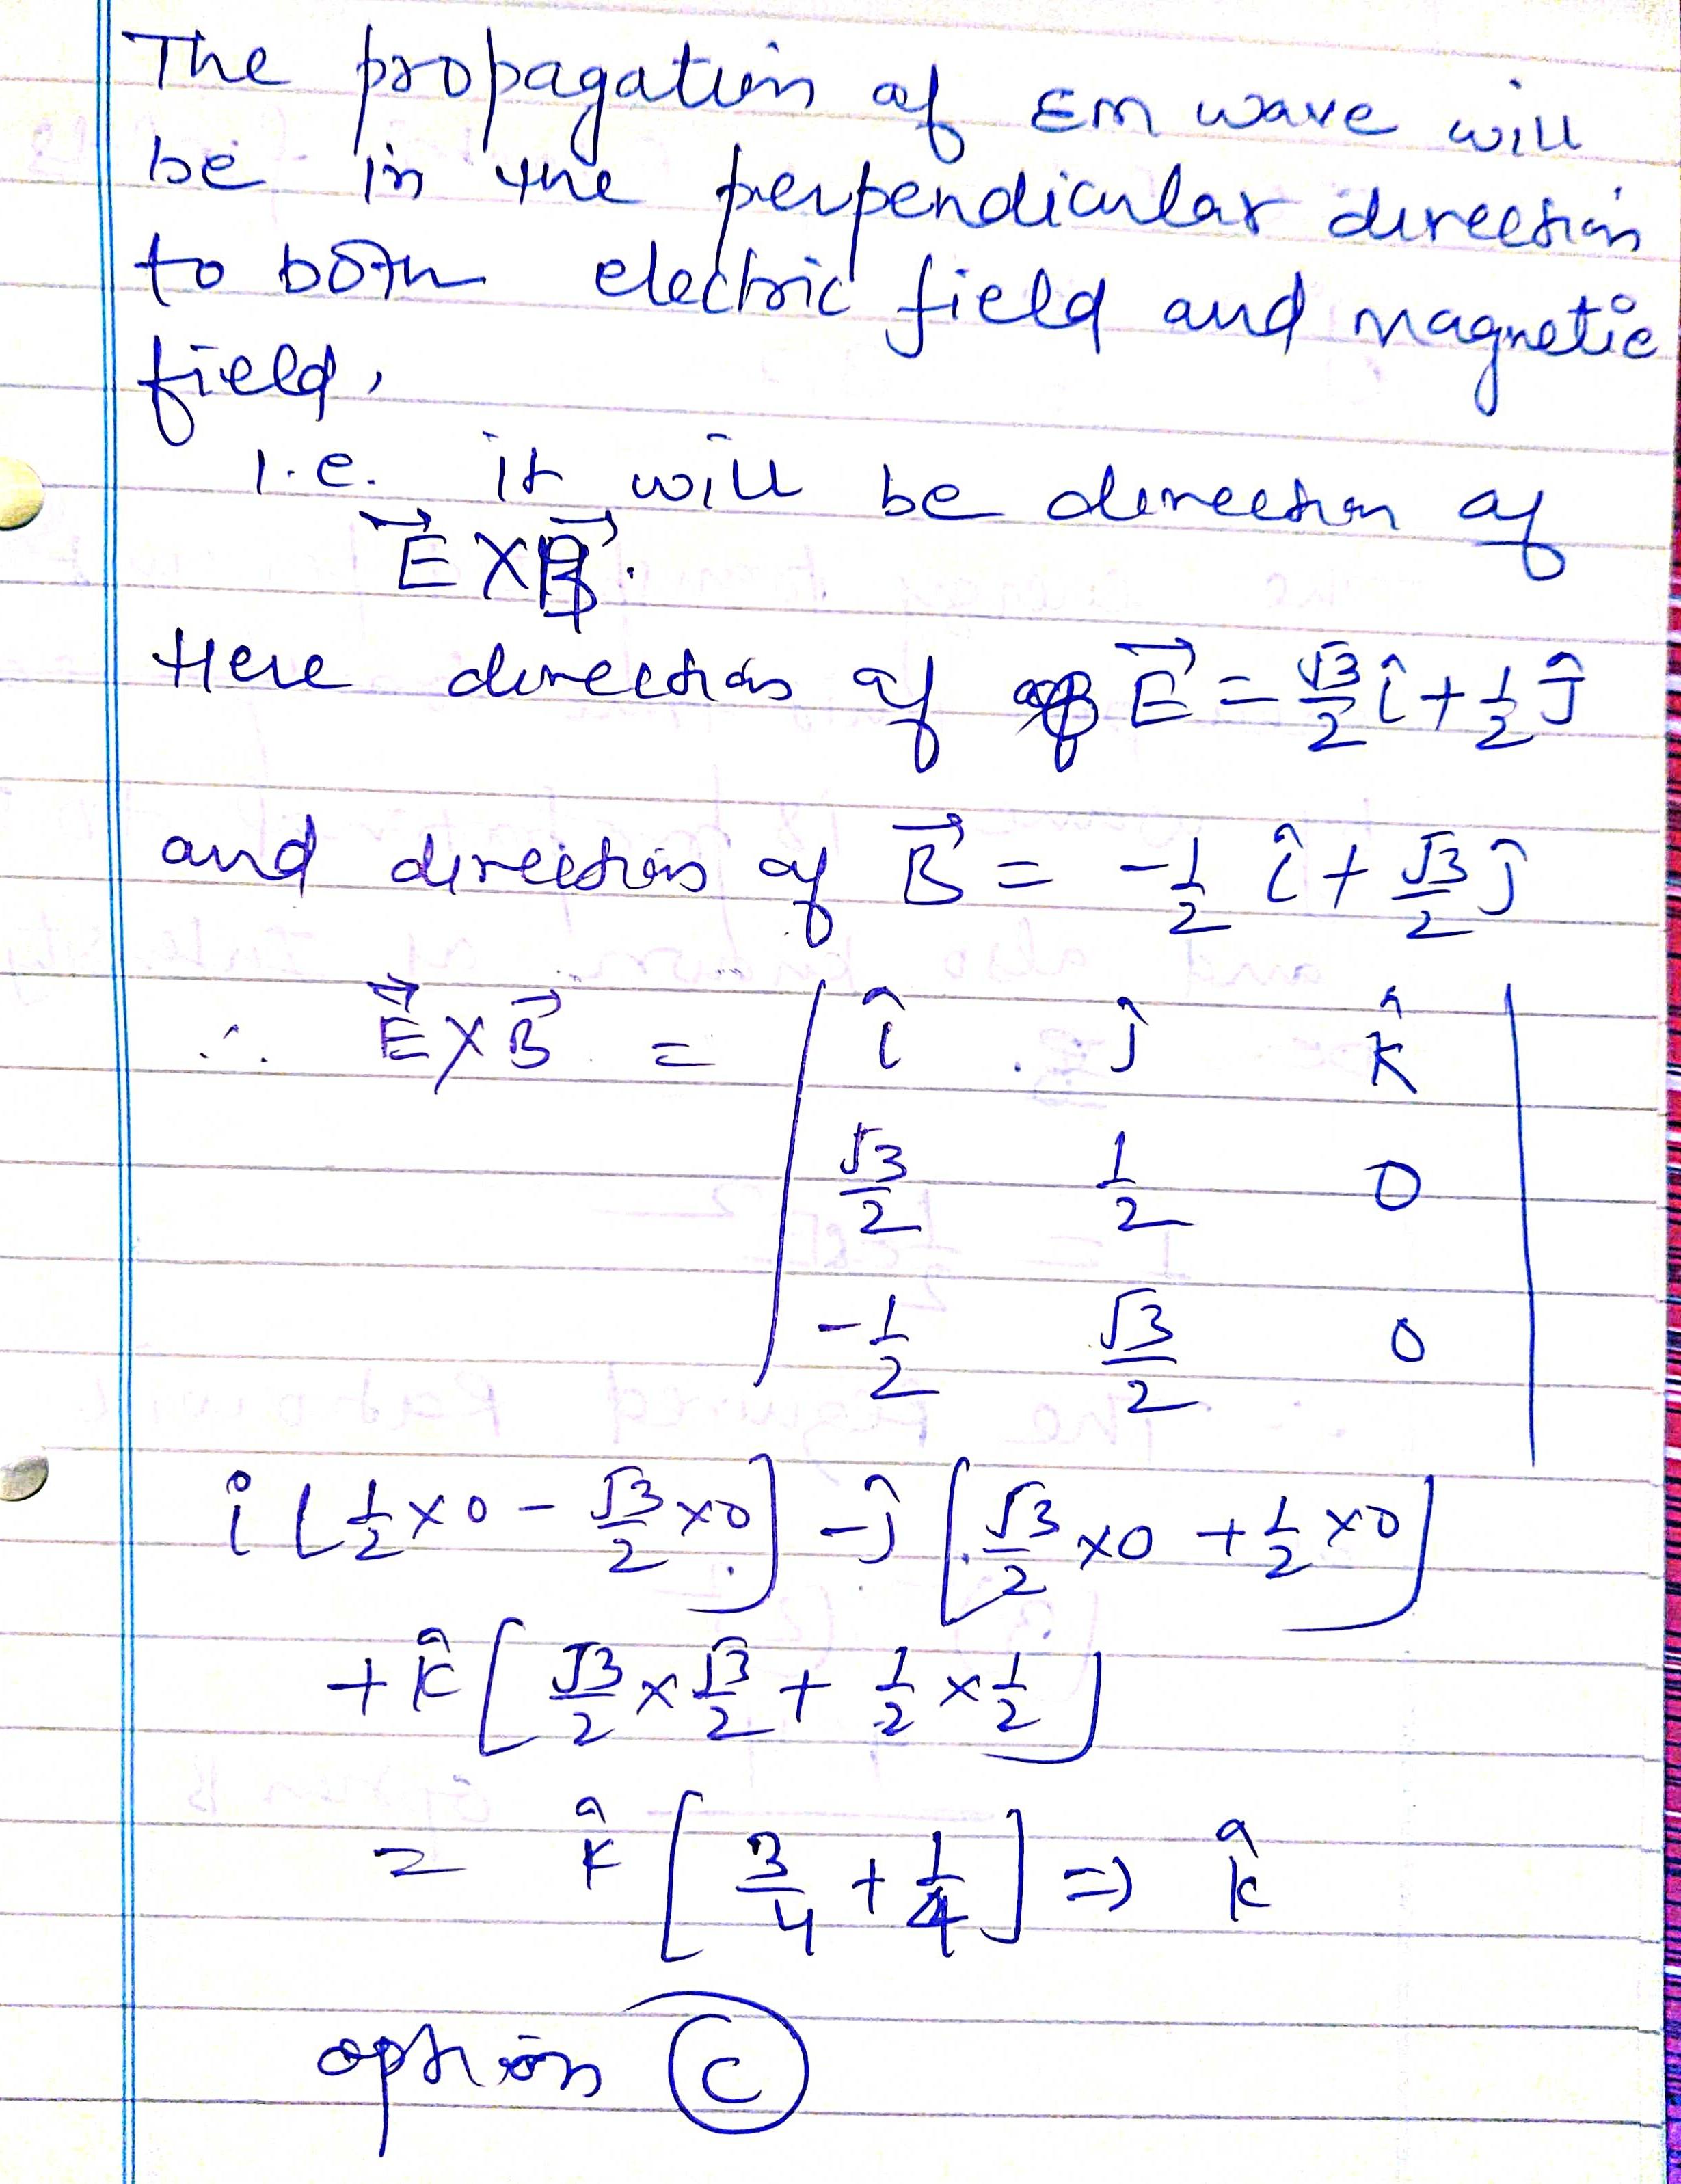 The propagation of EM wave will
be in the perpendicular direction
to both electric field and magnetic
field,
i.e. it will be direction of
E⃗ × B⃗.
Here direction of E⃗ = √3/2 î + 1/2 ĵ
and direction of B⃗ = -1/2 î + √3/2 ĵ
∴ E⃗ × B⃗ = | î ĵ k̂ |
√3/2 1/2 0
-1/2 √3/2 0
î [1/2 × 0 - √3/2 × 0] - ĵ [√3/2 × 0 + 1/2 × 0]
+ k̂ [√3/2 × √3/2 + 1/2 × 1/2]
= k̂ [3/4 + 1/4] ⇒ k̂
option (C)